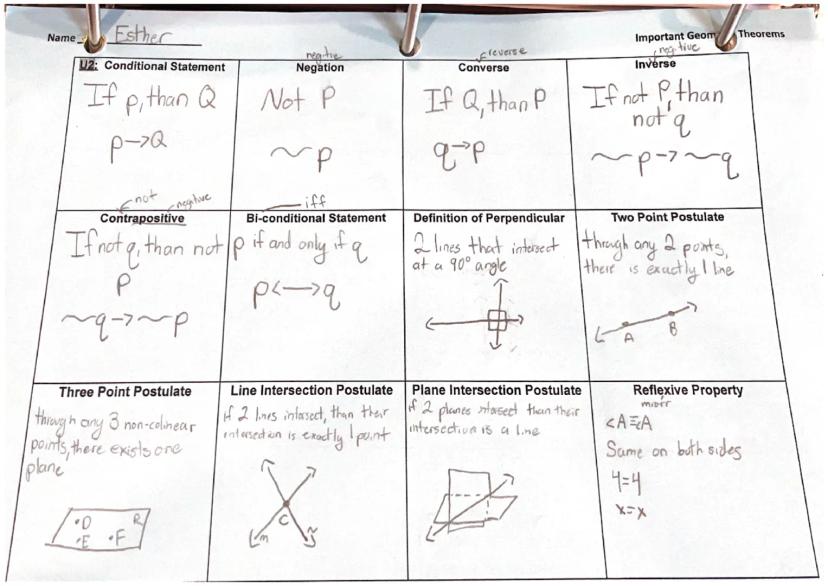 Name Esther
Important Geom Theorems
U2: Conditional Statement
If p, than Q
p→Q
negative
Negation
Not P
~p
reverse
Converse
If Q, than P
q→p
negative
Inverse
If not P, than
not q
~p→~q
not negative
Contrapositive
If not q, than not
p
~q→~p
iff
Bi-conditional Statement
p if and only if q
p<—>q
Definition of Perpendicular
2 lines that intersect
at a 90° angle
Two Point Postulate
through any 2 points,
there is exactly 1 line
A B
Three Point Postulate
through any 3 non-colinear
points, there exists one
plane
D R
E F
Line Intersection Postulate
if 2 lines intersect, than their
intersection is exactly 1 point
C
m
Plane Intersection Postulate
if 2 planes intersect than their
intersection is a line
Reflexive Property
mirorr
<A≅<A
Same on both sides
4=4
x=x